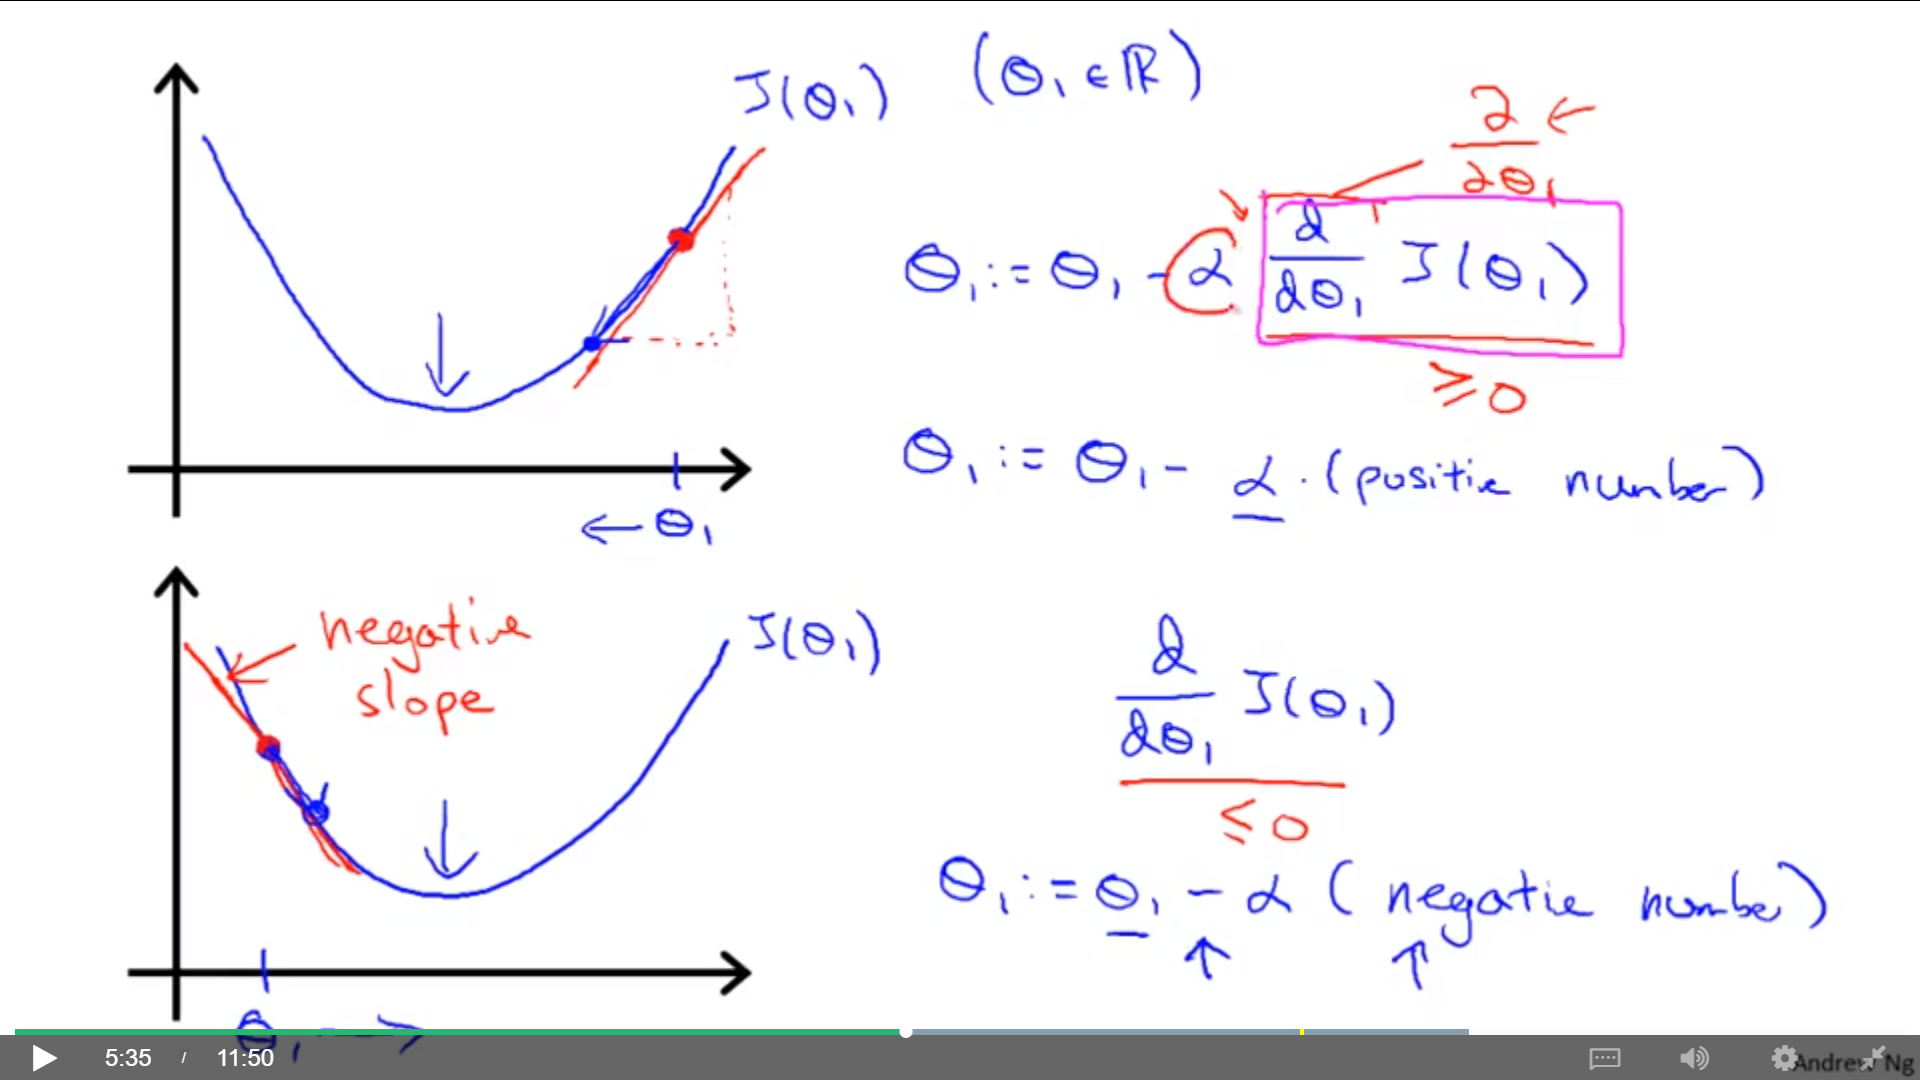 J(θ₁) (θ₁ ∈ ℝ)
∂/∂θ₁ ←
θ₁ := θ₁ - α d/dθ₁ J(θ₁)
≥ 0
θ₁ := θ₁ - α · (positive number)
← θ₁
negative slope
J(θ₁)
d/dθ₁ J(θ₁)
≤ 0
θ₁ := θ₁ - α (negative number)
θ₁ →
5:35 / 11:50
Andrew Ng